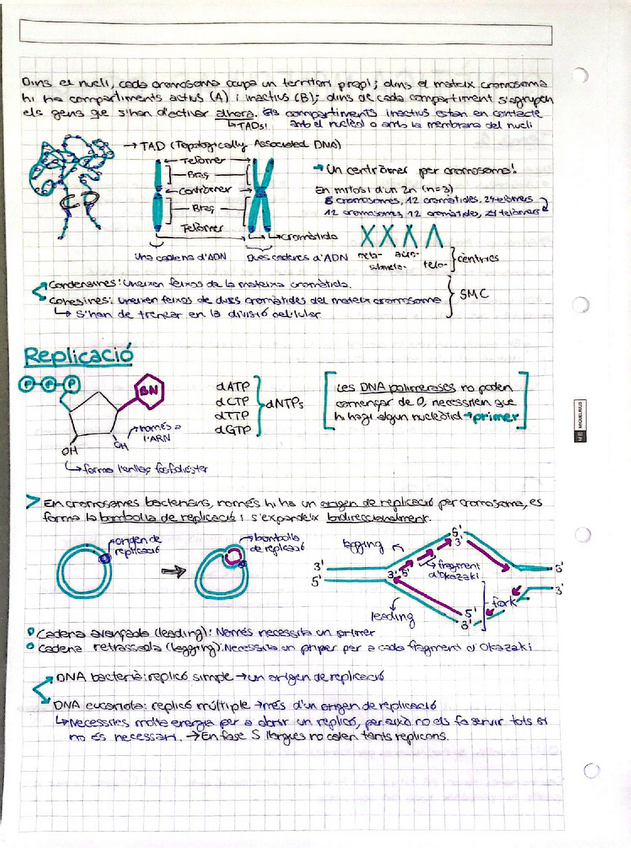 Dins el nucli, cada cromosoma ocupa un territori propi; dins el mateix cromosoma
hi ha compartiments actius (A) i inactius (B); dins de cada compartiment s'agrupen
els gens qe s'han d'activar ahora. Els compartiments inactius estan en contacte
↳TADs!
amb el nuclèol o amb la membrana del nucli
→ TAD (Topologically Associated DNA)
Telòmer
Braç
Centròmer
Braç
Telòmer
Cromàtida
Una cadena d'ADN
Dues cadenes d'ADN
→ Un centròmer per cromosoma!
En mitosi d'un 2n (n=3)
6 cromosomes, 12 cromàtides, 24 telòmers
12 cromosomes, 12 cromàtides, 24 telòmers
meta-
submeta-
acro-
telo-
cèntrics
Condensines: uneixen feixos de la mateixa cromàtida.
Cohesines: uneixen feixos de dues cromàtides del mateix cromosoma
↳ S'han de trencar en la divisió cel·lular
SMC
Replicació
P P P
BN
OH
OH
només a l'ARN
↳ forma l'enllaç fosfodièster
dATP
dCTP
dTTP
dGTP
dNTPs
Les DNA polimerases no poden
començar de 0, necessiten que
hi hagi algun nucleòtid → primer
> En cromosomes bacterians, només hi ha un origen de replicació per cromosoma, es
forma la bombolla de replicació i s'expandeix bidireccionalment.
origen de
replicació
bombolla
de replicació
lagging
5'
3'
fragment
d'Okazaki
3'
5'
3'
5'
5'
3'
fork
leading
5'
3'
Cadena avançada (leading): Només necessita un primer
Cadena retrassada (lagging): Necessita un primer per a cada fragment d'Okazaki
DNA bacterià: replicó simple → un origen de replicació
DNA eucariota: replicó múltiple → més d'un origen de replicació
↳ Necessites molta energia per a obrir un replicó, per això no els fa servir tots si
no és necessari. → En fase S llargues no calen tants replicons.
MIQUELRIUS